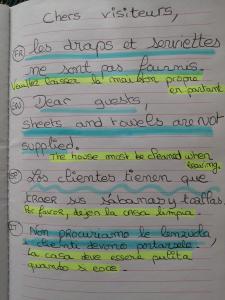 Chers visiteurs,
FR les draps et serviettes
ne sont pas fournis.
Veuillez laisser la maison propre
en partant
Dear guests,
sheets and towels are not
supplied.
The house must be cleaned when
leaving.
Los clientes tienen que
traer sus sabanas y tallas.
Por favor, dejen la casa limpia.
IT Non procuriamo le lenzuola,
i clienti devono portarsele.
La casa deve essere pulita
quando si esce.